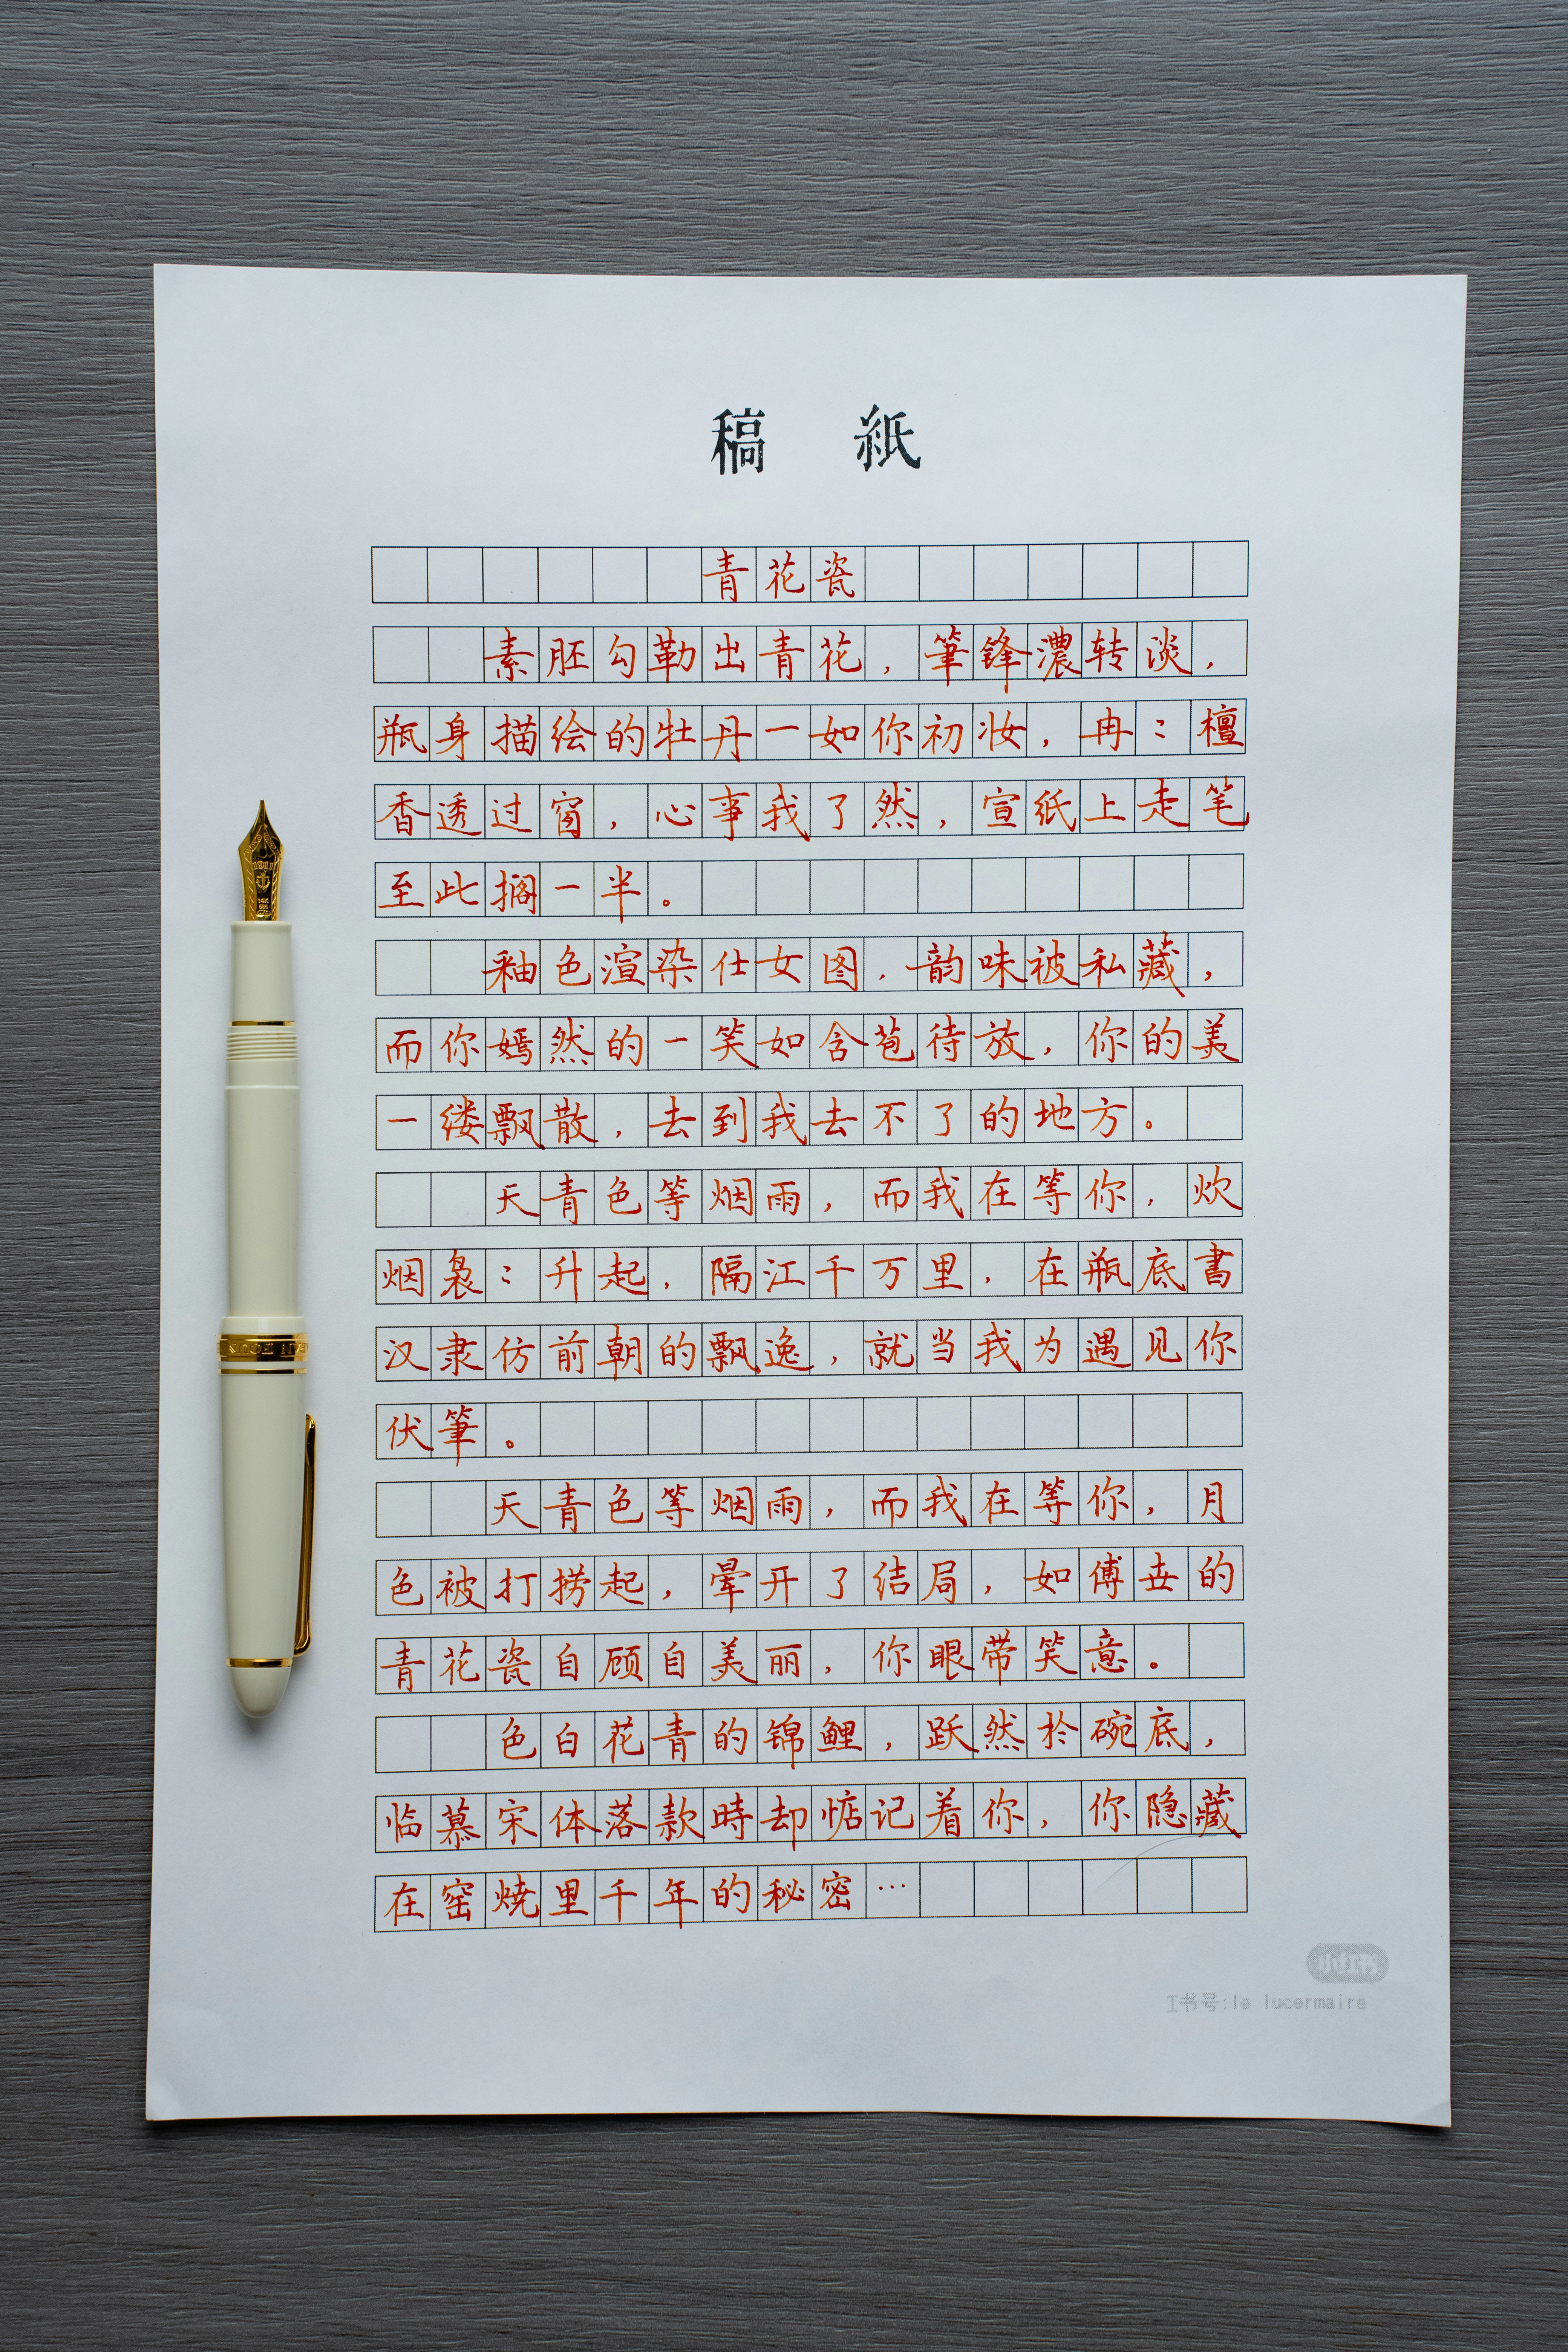 稿 紙
青花瓷
素胚勾勒出青花，筆锋濃转淡，
瓶身描绘的牡丹一如你初妆，冉〻檀
香透过窗，心事我了然，宣纸上走笔
至此搁一半。
釉色渲染仕女图，韵味被私藏，
而你嫣然的一笑如含苞待放，你的美
一缕飘散，去到我去不了的地方。
天青色等烟雨，而我在等你，炊
烟袅〻升起，隔江千万里，在瓶底書
汉隶仿前朝的飘逸，就当我为遇见你
伏筆。
天青色等烟雨，而我在等你，月
色被打捞起，晕开了结局，如傅世的
青花瓷自顾自美丽，你眼带笑意。
色白花青的锦鲤，跃然於碗底，
临慕宋体落款時却惦记着你，你隐藏
在窑烧里千年的秘密…
小红书
书号:le lucermaire